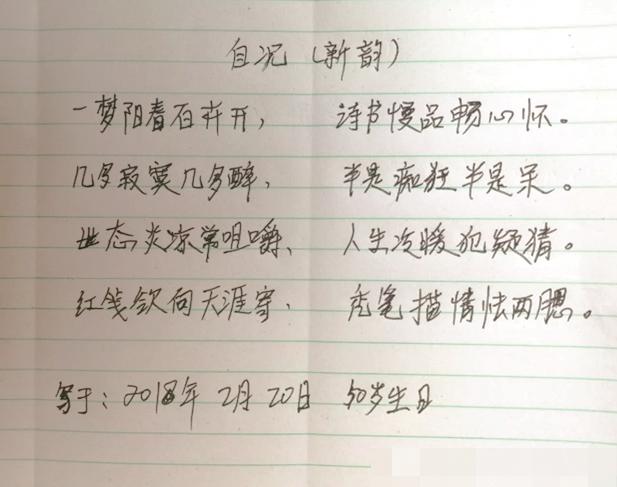 自况（新韵）
一梦阳春百卉开， 诗书慢品畅心怀。
几多寂寞几多醉， 半是痴狂半是呆。
世态炎凉常咀嚼、 人生冷暖犯疑猜。
红笺欲向天涯寄， 秃笔描情怯两腮。
写于：2018年2月20日 50岁生日